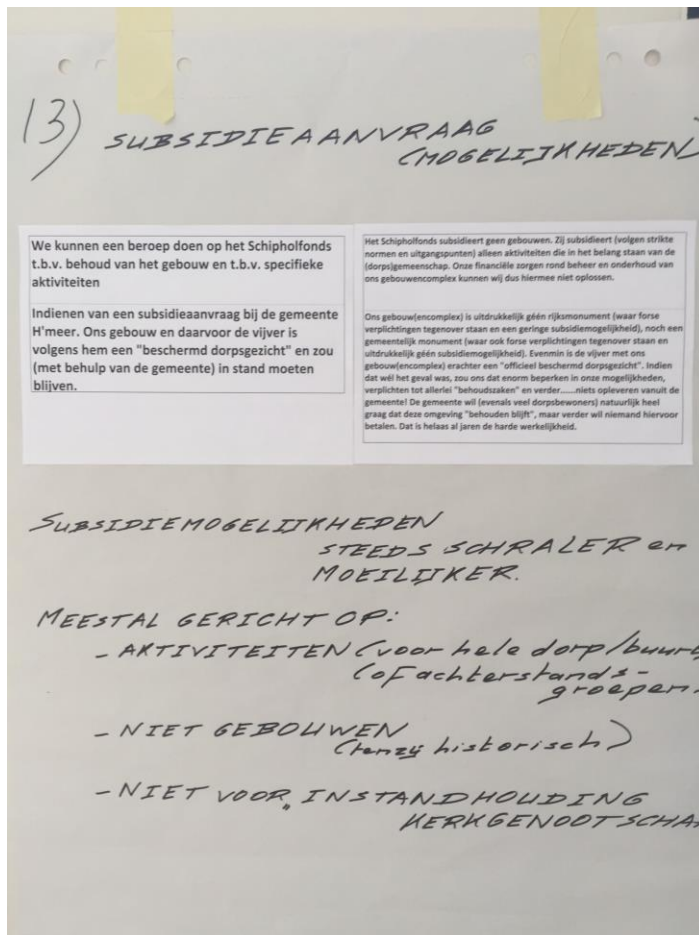 13) SUBSIDIEAANVRAAG
(MOGELIJKHEDEN)
We kunnen een beroep doen op het Schipholfonds
t.b.v. behoud van het gebouw en t.b.v. specifieke
aktiviteiten
Indienen van een subsidieaanvraag bij de gemeente
H'meer. Ons gebouw en daarvoor de vijver is
volgens hem een "beschermd dorpsgezicht" en zou
(met behulp van de gemeente) in stand moeten
blijven.
Het Schipholfonds subsidieert geen gebouwen. Zij subsidieert (volgen strikte
normen en uitgangspunten) alleen aktiviteiten die in het belang staan van de
(dorps)gemeenschap. Onze financiële zorgen rond beheer en onderhoud van
ons gebouwencomplex kunnen wij dus hiermee niet oplossen.
Ons gebouw(encomplex) is uitdrukkelijk géén rijksmonument (waar forse
verplichtingen tegenover staan en een geringe subsidiemogelijkheid), noch een
gemeentelijk monument (waar ook forse verplichtingen tegenover staan en
uitdrukkelijk géén subsidiemogelijkheid). Evenmin is de vijver met ons
gebouw(encomplex) erachter een "officieel beschermd dorpsgezicht". Indien
dat wél het geval was, zou ons dat enorm beperken in onze mogelijkheden,
verplichten tot allerlei "behoudszaken" en verder......niets opleveren vanuit de
gemeente! De gemeente wil (evenals veel dorpsbewoners) natuurlijk heel
graag dat deze omgeving "behouden blijft", maar verder wil niemand hiervoor
betalen. Dat is helaas al jaren de harde werkelijkheid.
SUBSIDIEMOGELIJKHEDEN
STEEDS SCHRALER en
MOEILIJKER.
MEESTAL GERICHT OP:
- AKTIVITEITEN (voor hele dorp/buurt
(of achterstands-
groepen.
- NIET GEBOUWEN
(tenzij historisch)
- NIET VOOR „INSTANDHOUDING
KERKGENOOTSCHA